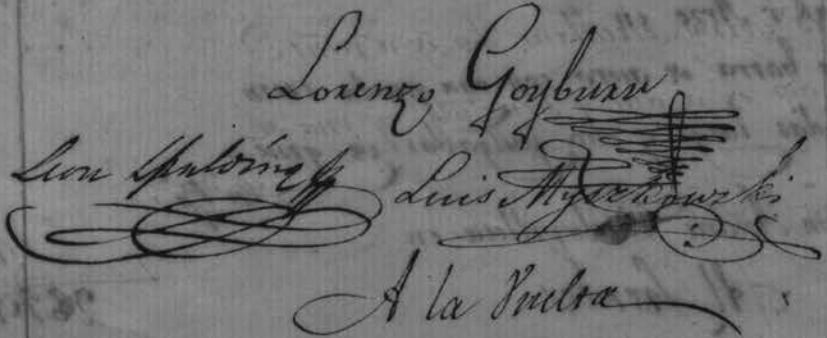 Lorenzo Goyburu
Leon Luis Myszkowski
A la Vuelta